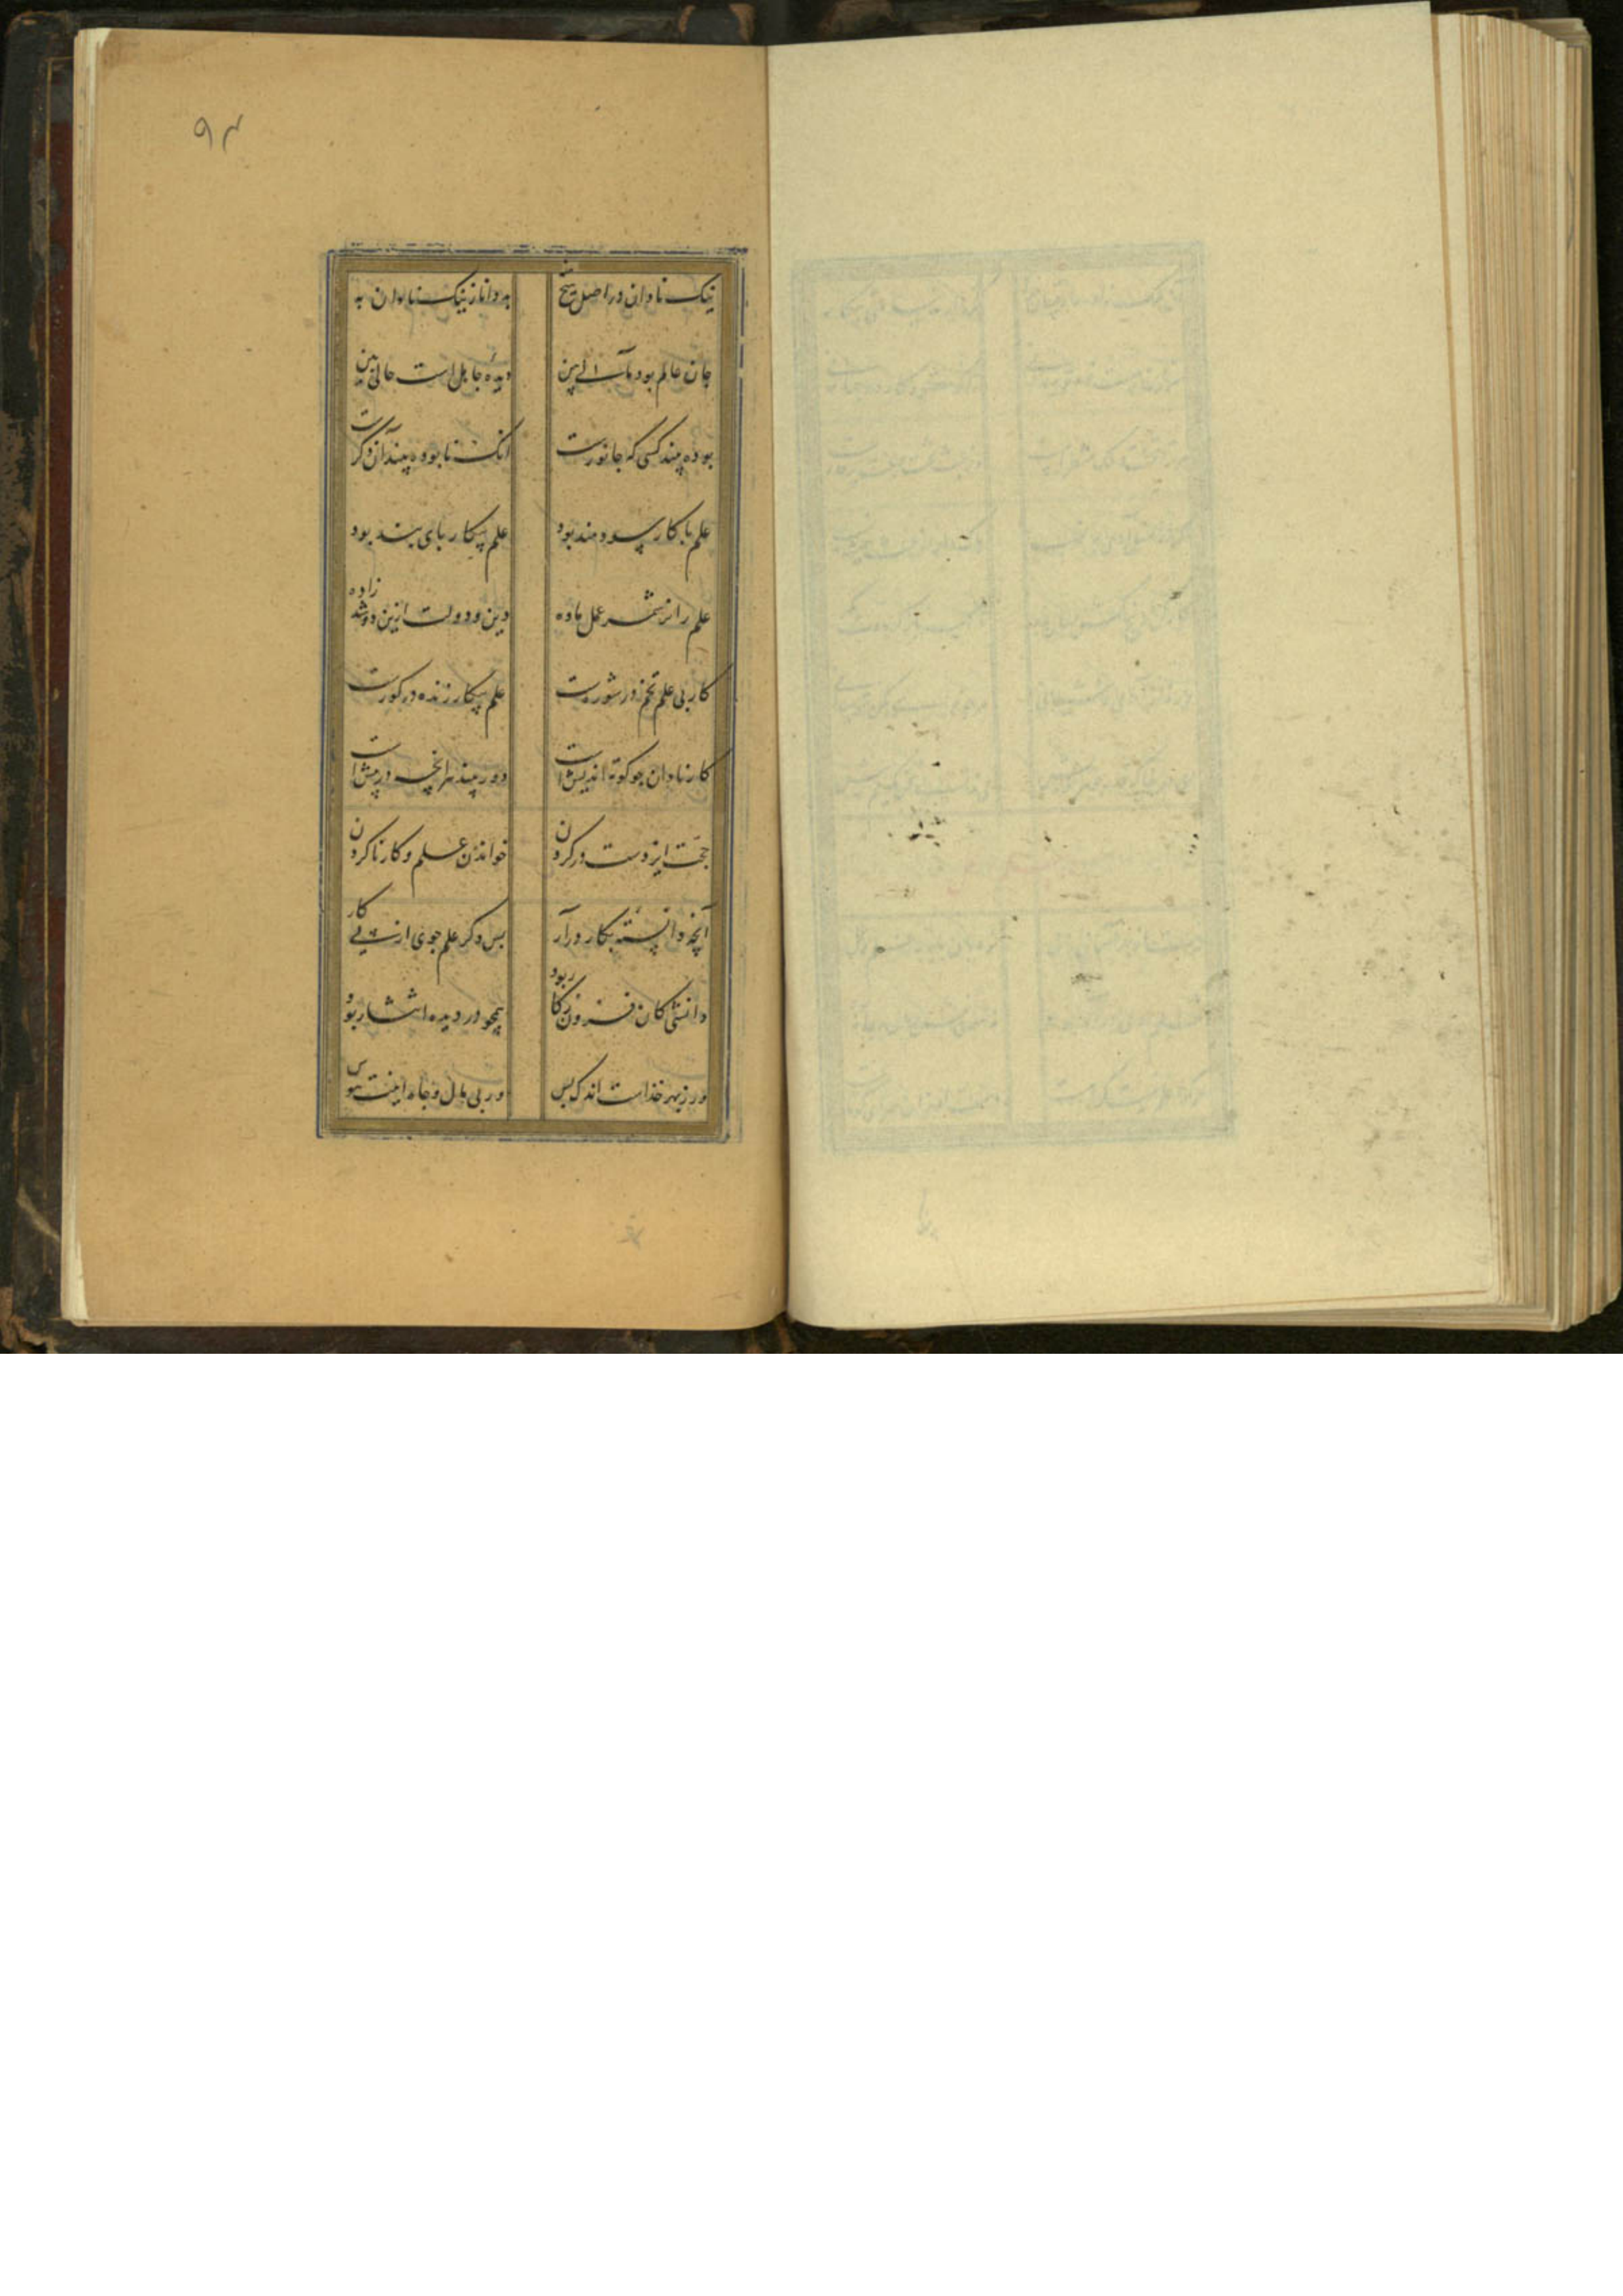 ۹۳
نیک نادان در اصل نیخ به
بد دانا ز نیک نادان به
جان عالم بود مآل بین
دیدهٔ جاهل است حالی بین
بوده بیند کسی که جانورست
انک نابوده بیند آن دگرست
علم با کار سودمند بود
علم بیکار پای بند بود
علم را نر شمر عمل ماده
دین و دولت ازین دو شد زاده
کار بی علم تخم در شورست
علم بیکار زنده در کورست
کار نادان چو کوته اندیش است
دور بیند هر انچه در پیش است
حجت ایزدست در کردن
خواندن علم و کار ناکردن
آنچه دانسته بکار درآر
بس دکر علم جوی از پی کار
دانشی کان فزون ز کار بود
همچو در دیده انتشار بود
ور ز بهر خداست اندک بس
ور پی مال و جاه اینت هوس